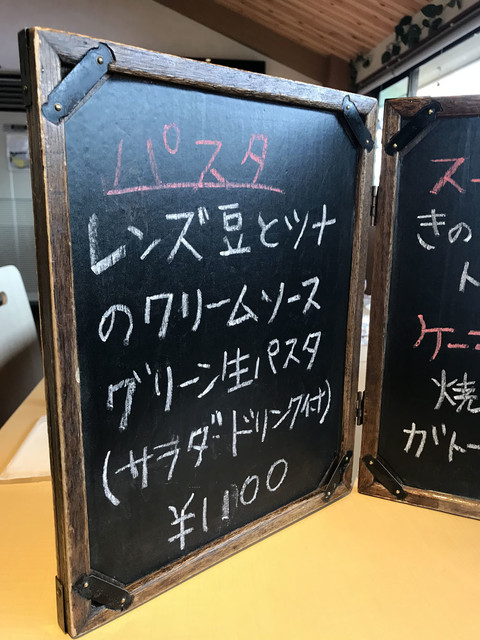 パスタ
レンズ豆とツナ
のクリームソース
グリーン生パスタ
(サラダ・ドリンク付)
¥1,100
スー
きの
ト
ケー
焼
ガトー